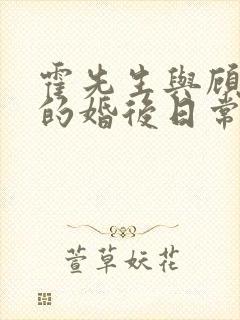 霍先生與顧
的婚後日常
萱草妖花